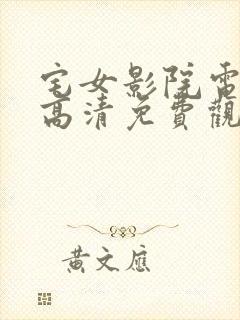 宅女影院電
高清免費觀
黃文應